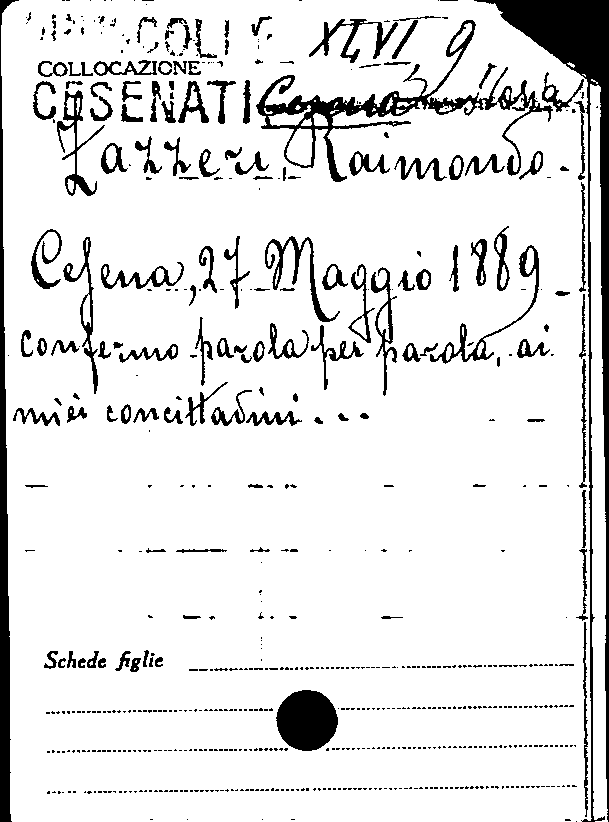 COLL XLVI, 9
COLLOCAZIONE
CESENATI
Lazzeri, Raimondo.
Cesena, 27 Maggio 1889 -
confermo parola per parola, ai
miei concittadini...
Schede figlie